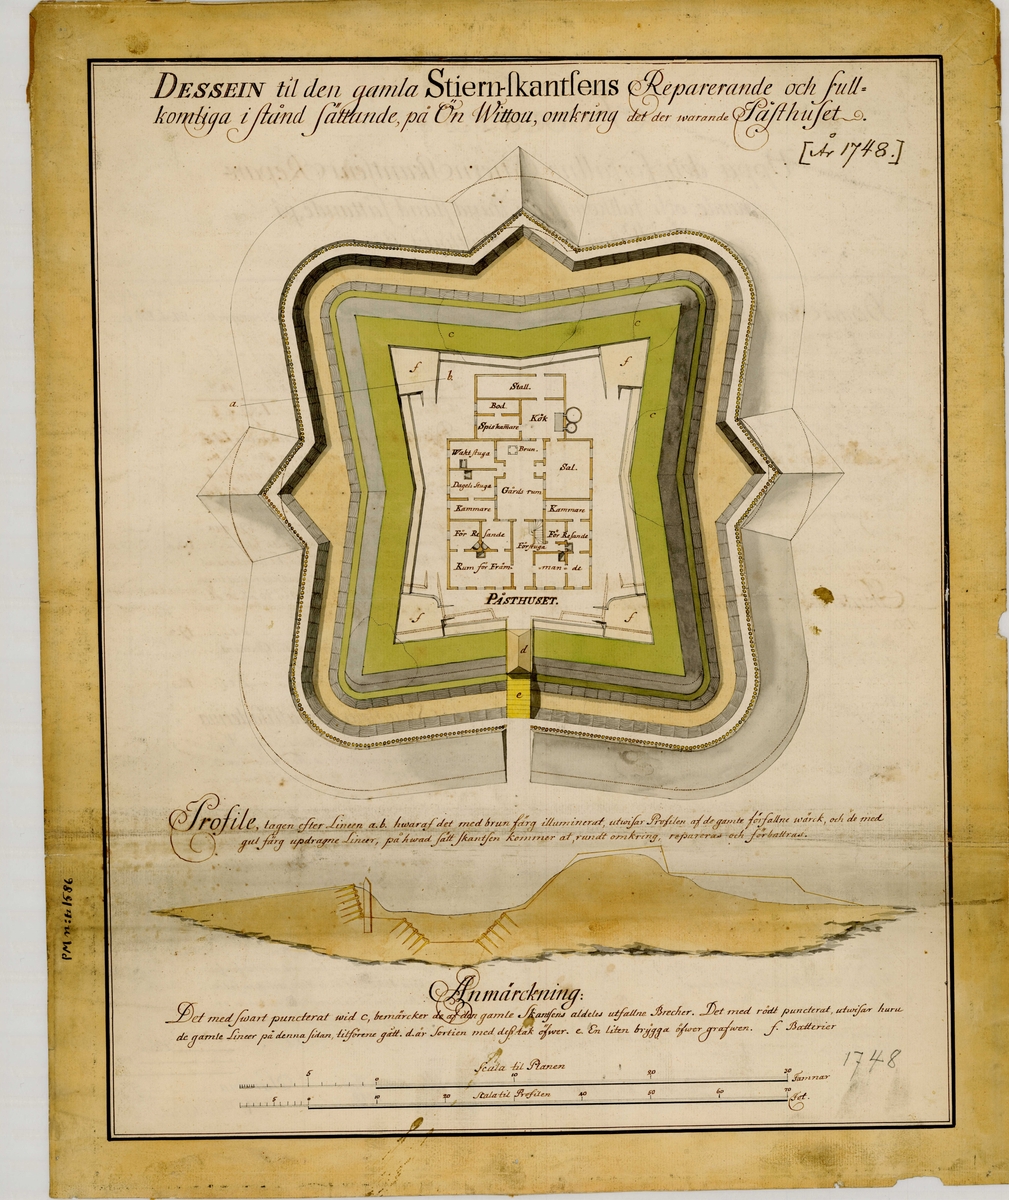 DESSEIN til den gamla Stiern-skantsens Reparerande och full=
komliga i stånd sättande, på Ön Wittou, omkring det der warande Påsthuset.
[År 1748.]
c
c
f
f
b.
a
Stall.
Bod.
Kök
Spiskam̄are
c
Wakt stuga
Brun.
Sal.
Dagel. Stuga
Gårds rum
Kammare
Kammare
För Resande
Förstuga
För Resande
Rum för Främ-
man-de
PÅSTHUSET.
f
f
d
e
Profile, tagen efter Lineen a.b. hwaraf det med brun färg illuminerat, utwisar Profilen af de gamle förfallne wärck, och de med
gul färg updragne Lineer, på hwad sätt skantsen kommer at, rundt omkring, repareras och förbättras.
PM n:r 1586
Anmärckning:
Det med swart puncterat wid c, bemärcker de af den gamle Skantsens aldeles utfallne Brecher. Det med rödt puncterat, utwisar huru
de gamle Lineer på denna sidan, tilförene gått. d. är Sortien med deß tak öfwer. e. En liten brygga öfwer grafwen. f. Batterier
1748
Scala til Planen
5 0 10 20 30 Famnar
Scala til Profilen
5 0 10 20 40 50 60 70 Fot.